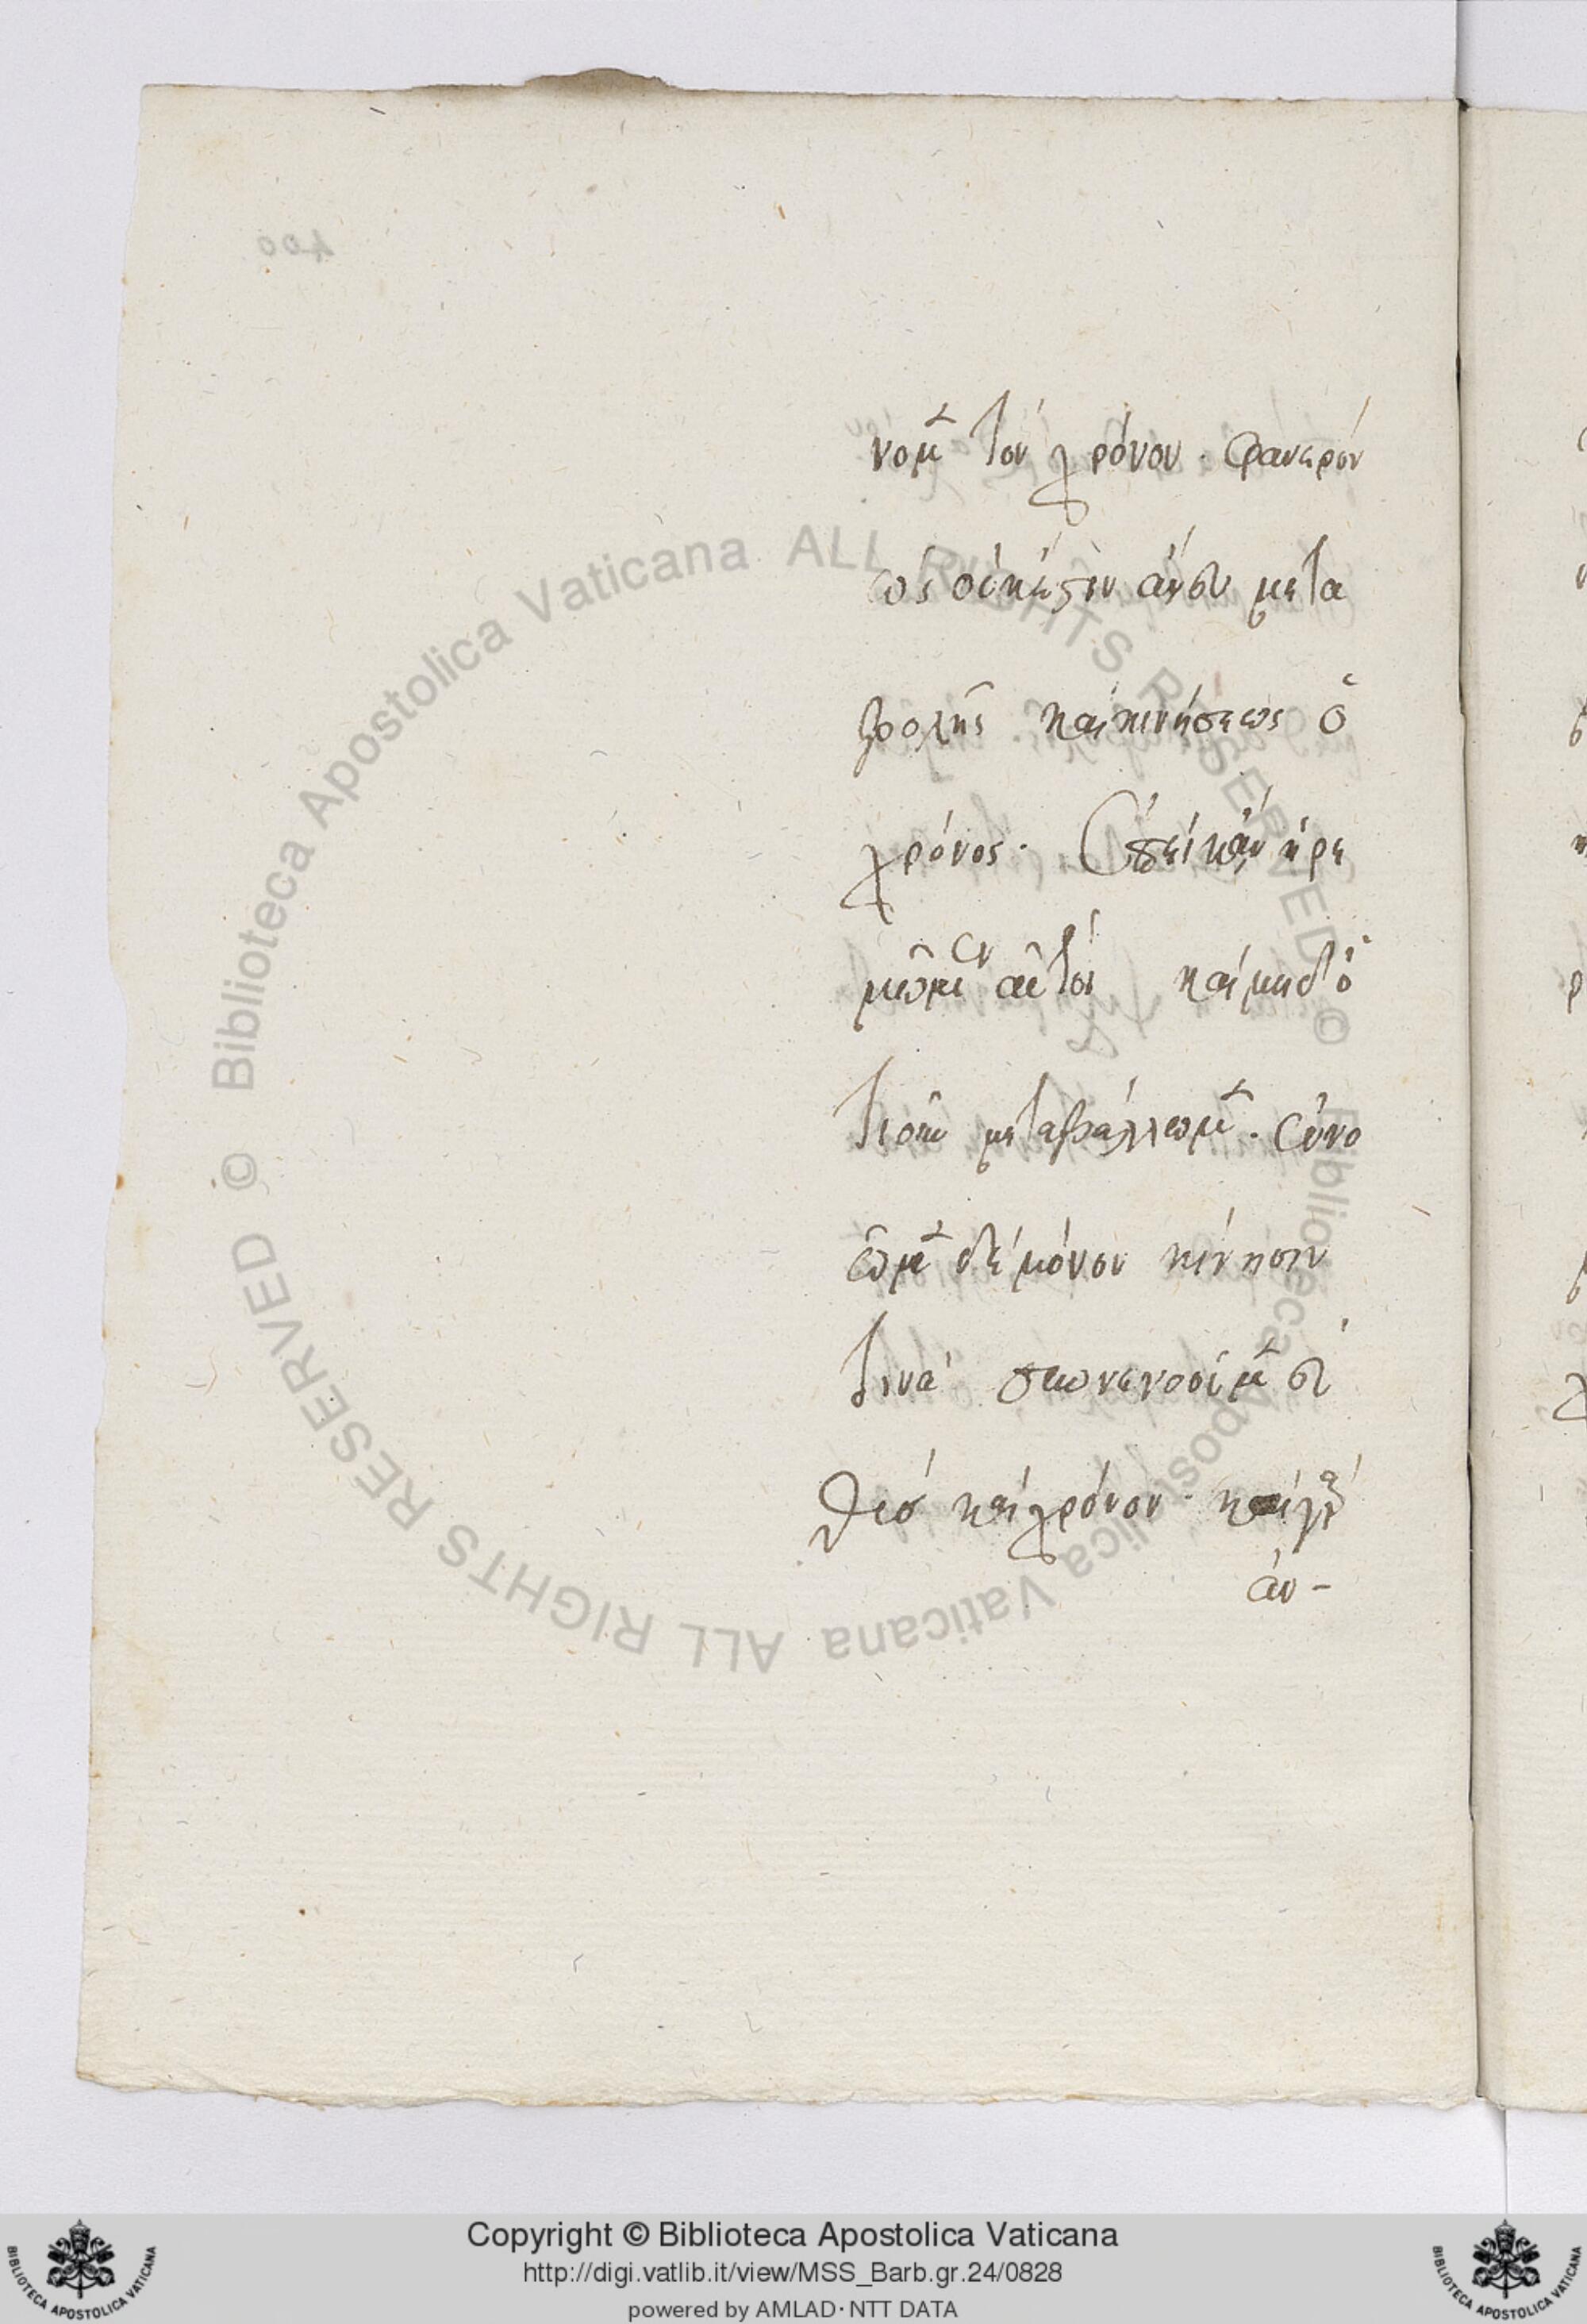 νομ̃ τὸν χρόνον. Φανερὸν
ὡς οὐκ ἔστιν ἄνευ μετα
βολῆς καὶ κινήσεως ὁ
χρόνος. Ἐπεὶ κἂν ἠρε
μῶμεν αὐτοὶ καὶ μηδ ὁ
τιοῦν μεταβάλλωμ̃. ἐννο
ῶμ̃ δὲ μόνον κίνησιν
τινὰ συνενοοῦμ̃ εὐ
θὺς καὶ χρόνον. καὶ γὰρ
ἀν-
400
© Biblioteca Apostolica Vaticana ALL RIGHTS RESERVED © Biblioteca Apostolica Vaticana ALL RIGHTS RESERVED
Copyright © Biblioteca Apostolica Vaticana
http://digi.vatlib.it/view/MSS_Barb.gr.24/0828
powered by AMLAD·NTT DATA
BIBLIOTECA APOSTOLICA VATICANA
BIBLIOTECA APOSTOLICA VATICANA